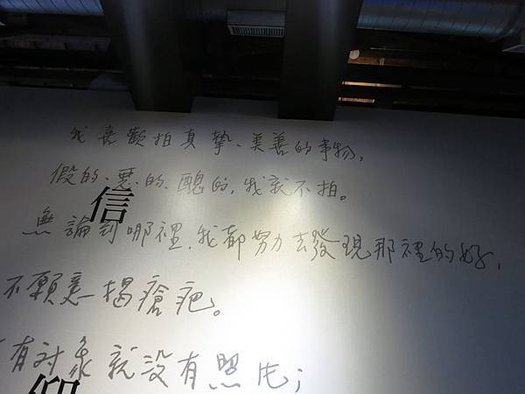 我喜歡拍真摯、美善的事物，
假的、惡的、醜的，我就不拍。
信
無論到哪裡，我都努力去發現那裡的好，
不願意揭瘡疤。
有对象就没有照片；
仰